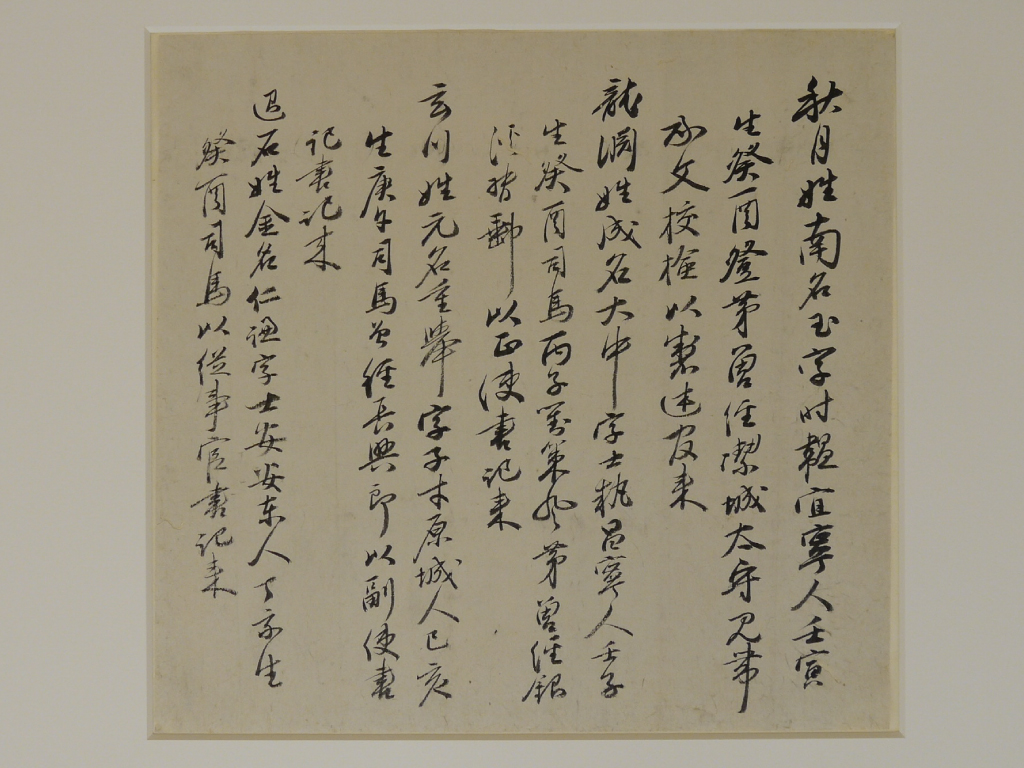 秋月姓南名玉字时韞宜寧人壬寅
生癸酉登第曽任潔城太守見帶
承文校檢以製述官来
龍淵姓成名大中字士執昌寧人壬子
生癸酉司馬丙子對策 第曽任銀
溪督郵以正使書記来
玄川姓元名重擧字子才原城人己亥
生庚午司馬曽經長興 以副使書
記書記来
退石姓金名仁謙字士安安東人丁亥生
癸酉司馬以從事官書記来